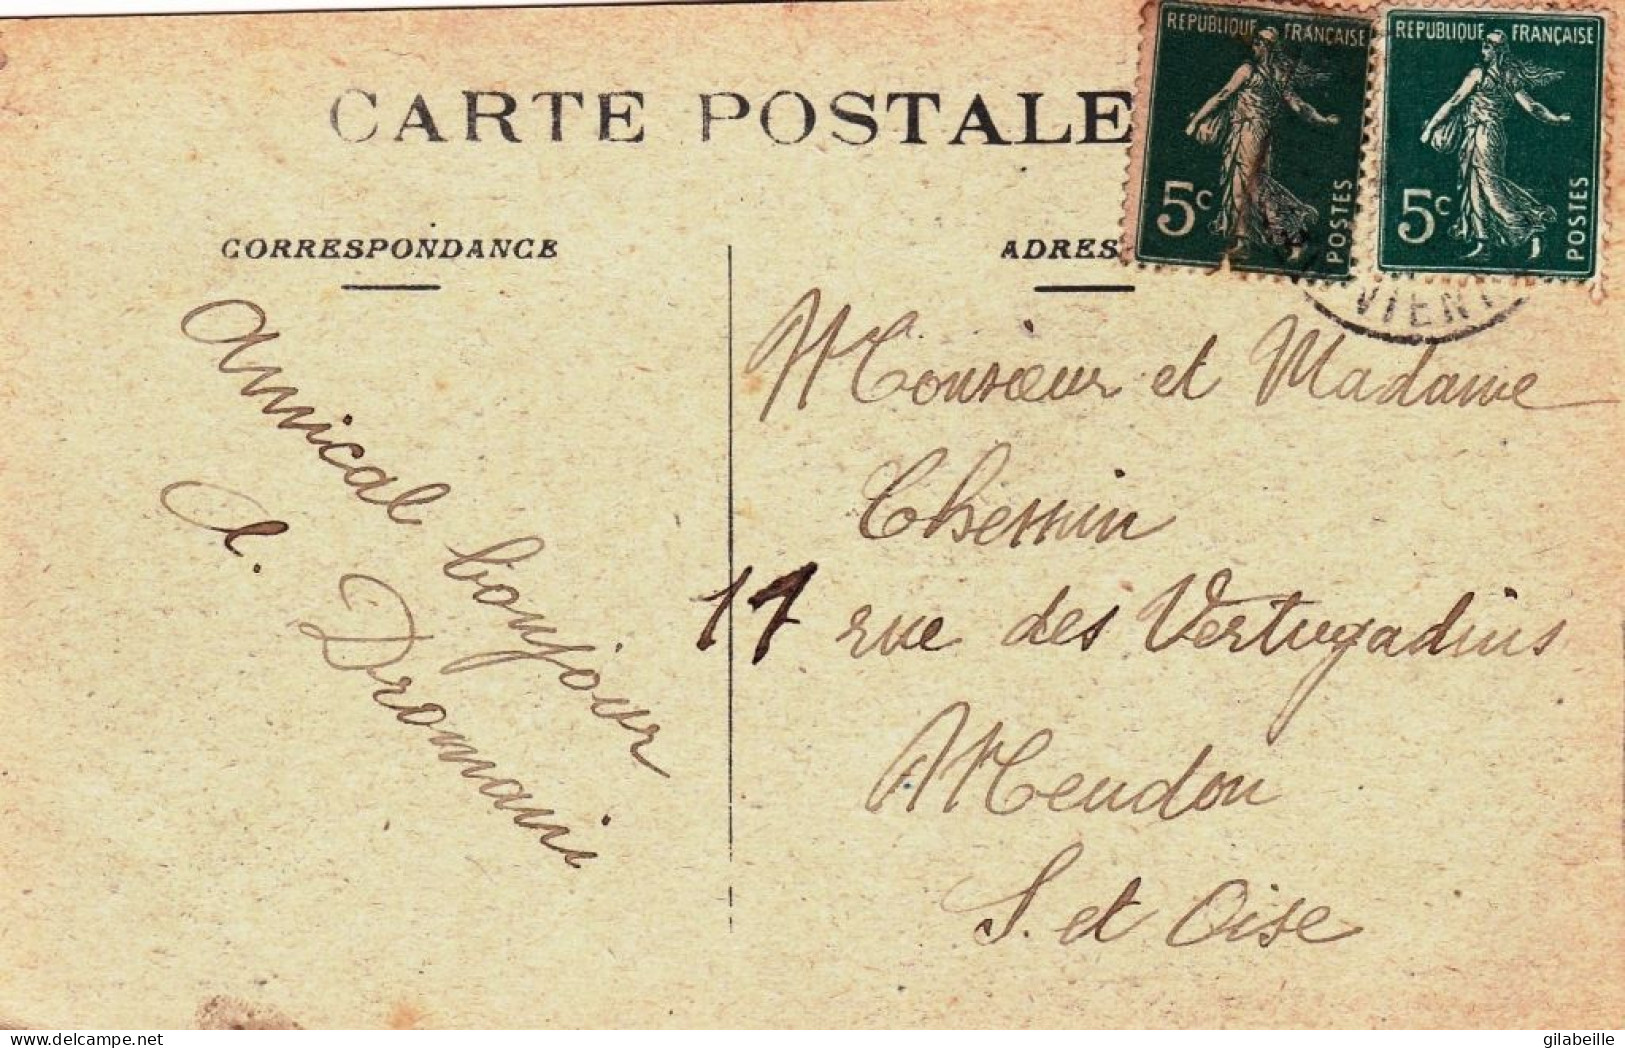 CARTE POSTALE
RÉPUBLIQUE FRANÇAISE
5c
POSTES
RÉPUBLIQUE FRANÇAISE
5c
POSTES
CORRESPONDANCE
ADRES
VIENN
Amical bonjour
A. Dromani
Monsieur et Madame
Chessin
17 rue des Vertugadins
Meudon
S. et Oise
delcampe.net
gilabeille